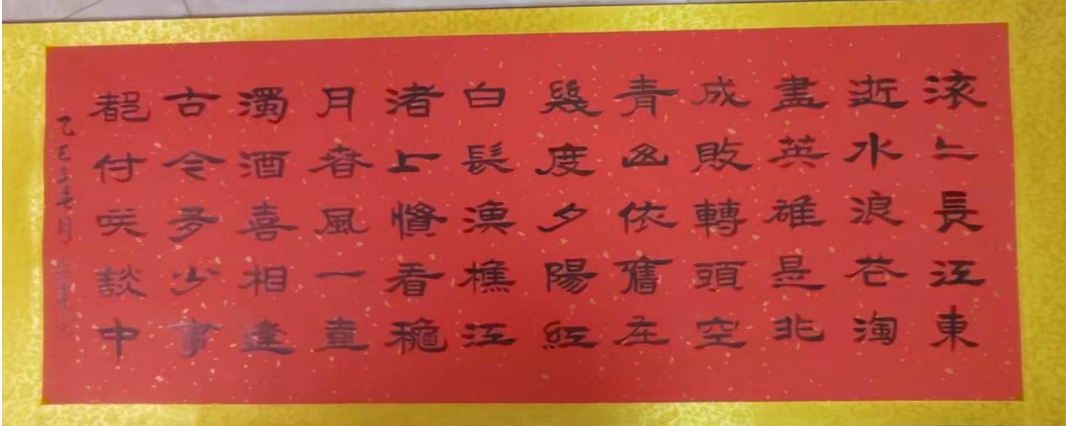 滚〻長江東
逝水浪花淘
盡英雄是非
成敗轉頭空
青山依舊在
幾度夕陽紅
白髮漁樵江
渚上慣看穐
月春風一壺
濁酒喜相逢
古今多少事
都付笑談中
乙巳春月